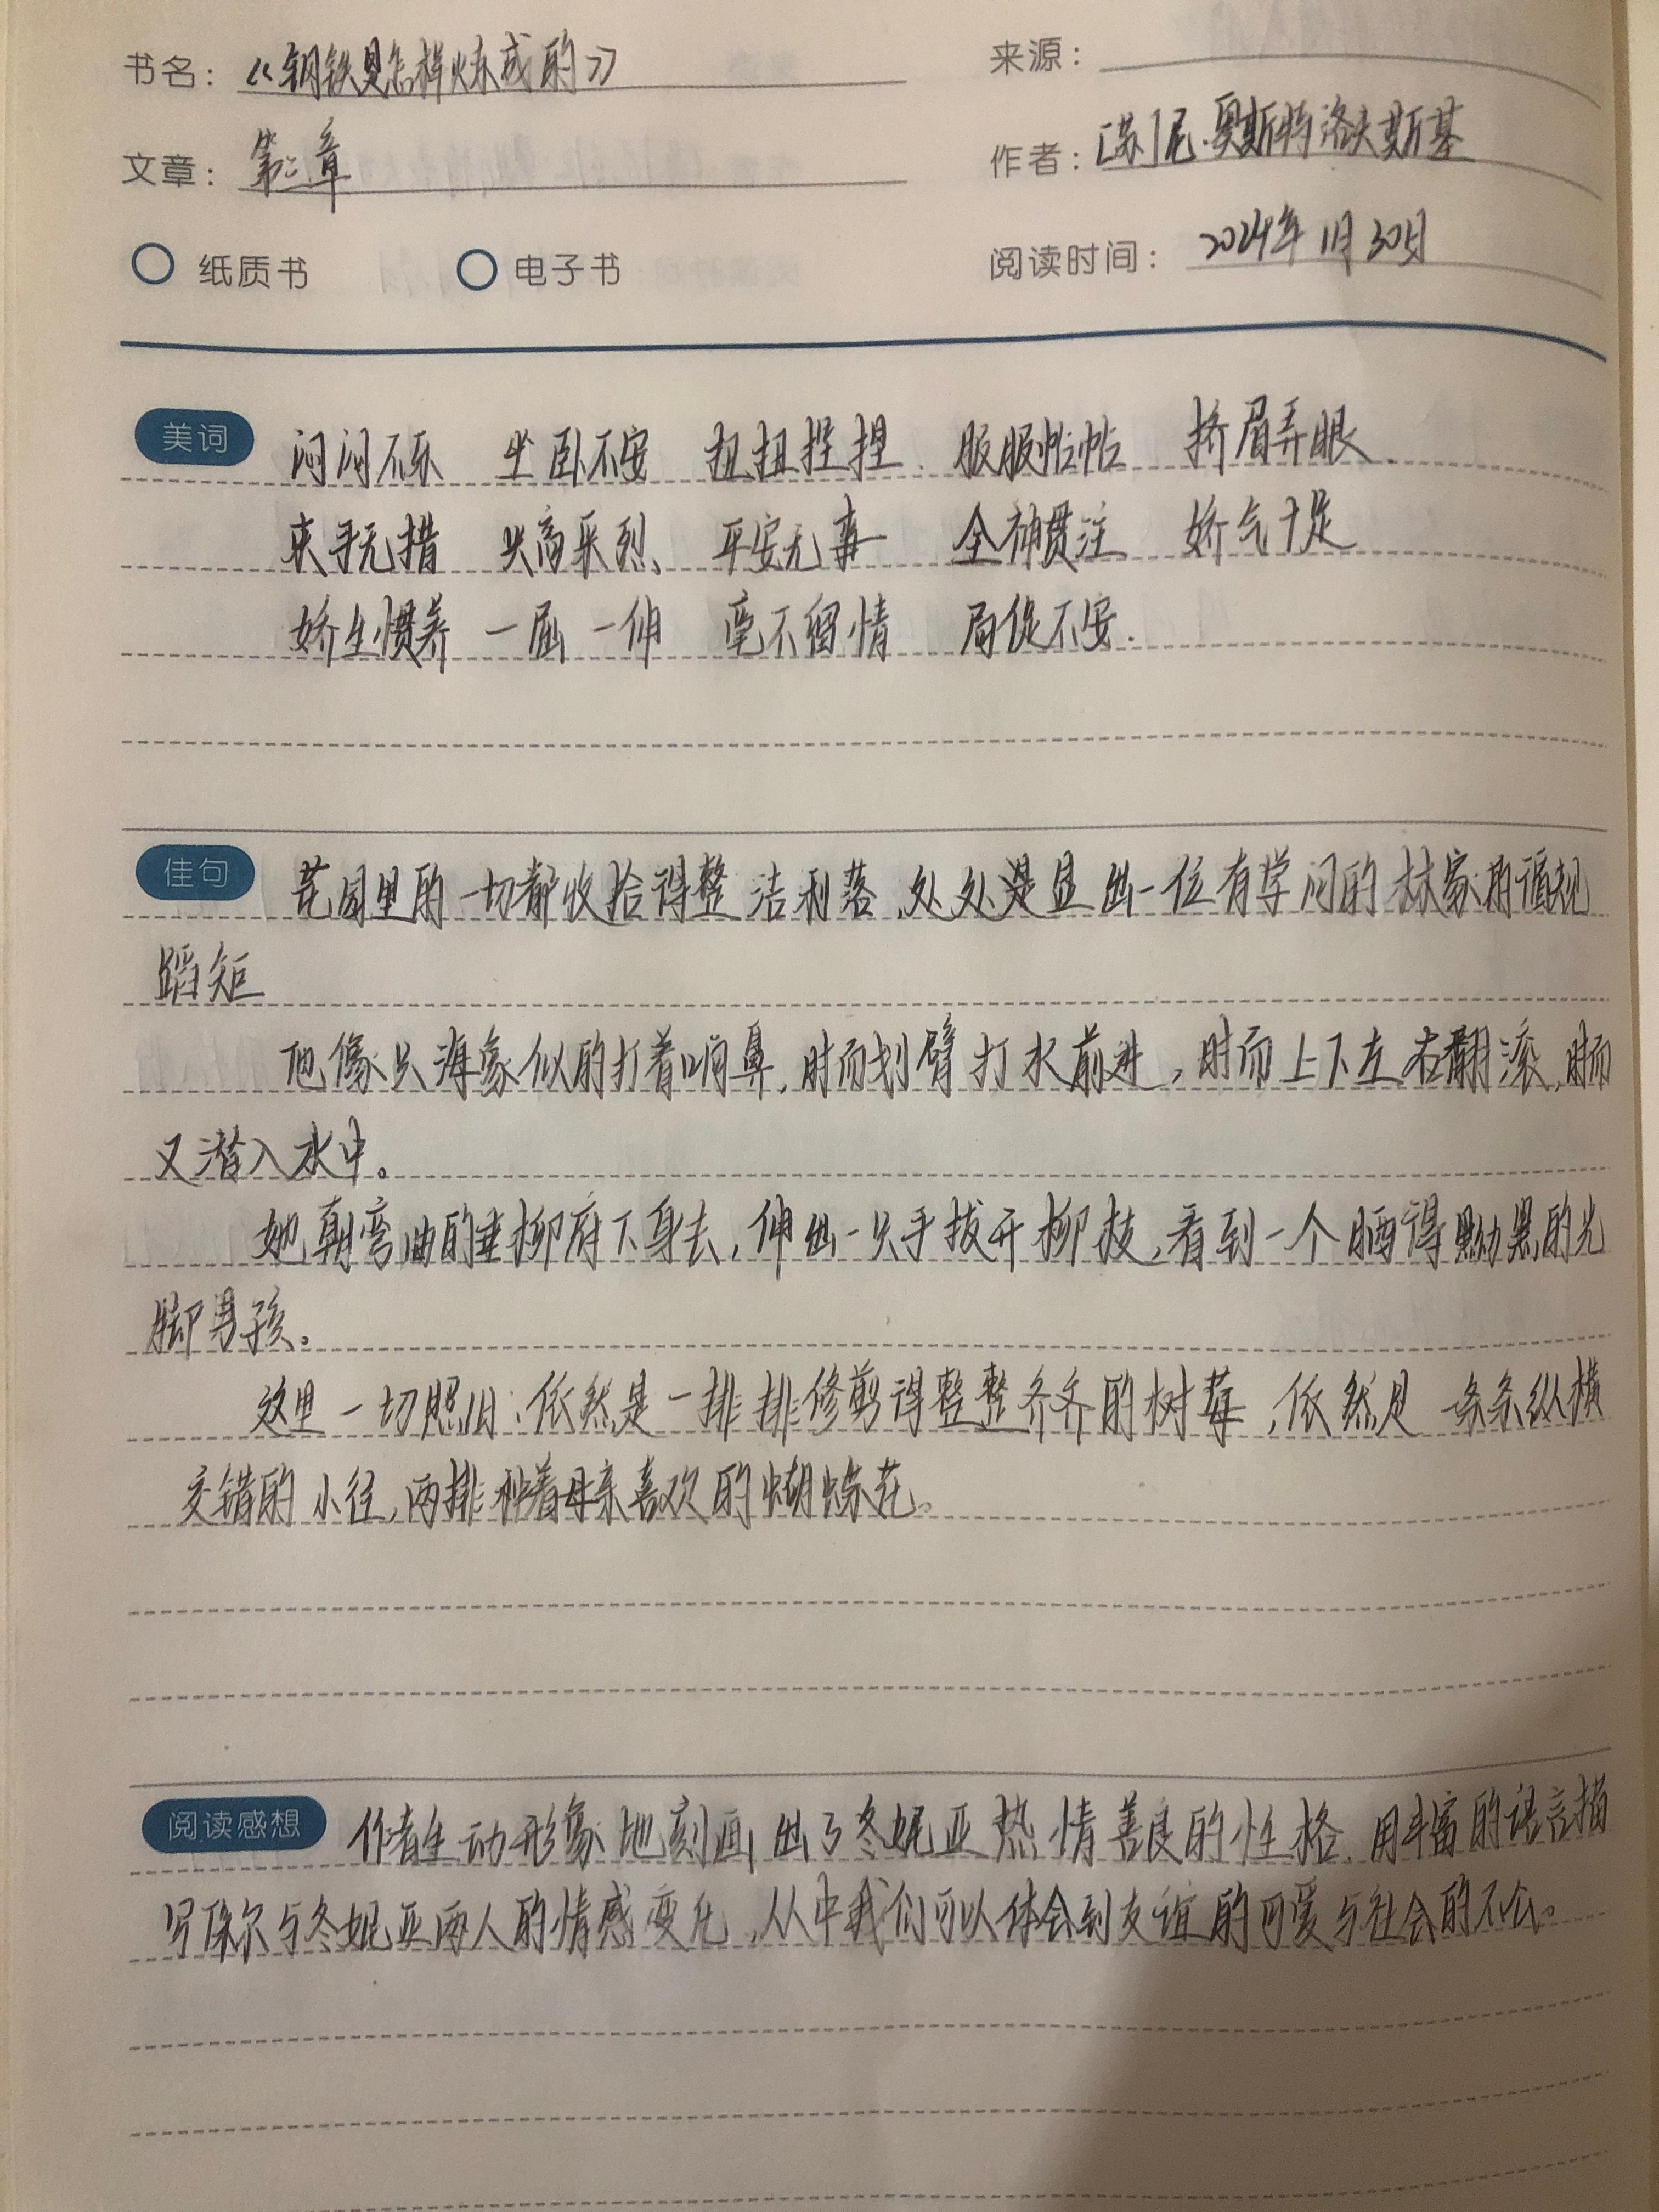 书名：《钢铁是怎样炼成的》 来源：
文章：第三章 作者：[苏]尼·奥斯特洛夫斯基
纸质书 电子书 阅读时间：2024年11月30日
美词 闷闷不乐 坐卧不安 扭扭捏捏 服服帖帖 挤眉弄眼
束手无措 兴高采烈、 平安无事 全神贯注 娇气十足
娇生惯养 一屈一伸 毫不留情 局促不安.
佳句 花园里的一切都收拾得整洁利落,处处显出一位有学问的林家的循规
蹈矩
他像只海象似的打着响鼻,时而划臂打水前进,时而上下左右翻滚,时而
又潜入水中。
她朝弯曲的垂柳府下身去,伸出一只手拔开柳枝,看到一个晒得黝黑的光
脚男孩。
这里一切照旧:依然是一排排修剪得整整齐齐的树莓,依然是一条条纵横
交错的小径,两排种着母亲喜欢的蝴蝶花。
阅读感想 作者生动形象地刻画出了冬妮亚热情善良的性格,用丰富的语言描
写保尔与冬妮亚两人的情感变化,从中我们可以体会到友谊的可爱与社会的不公。